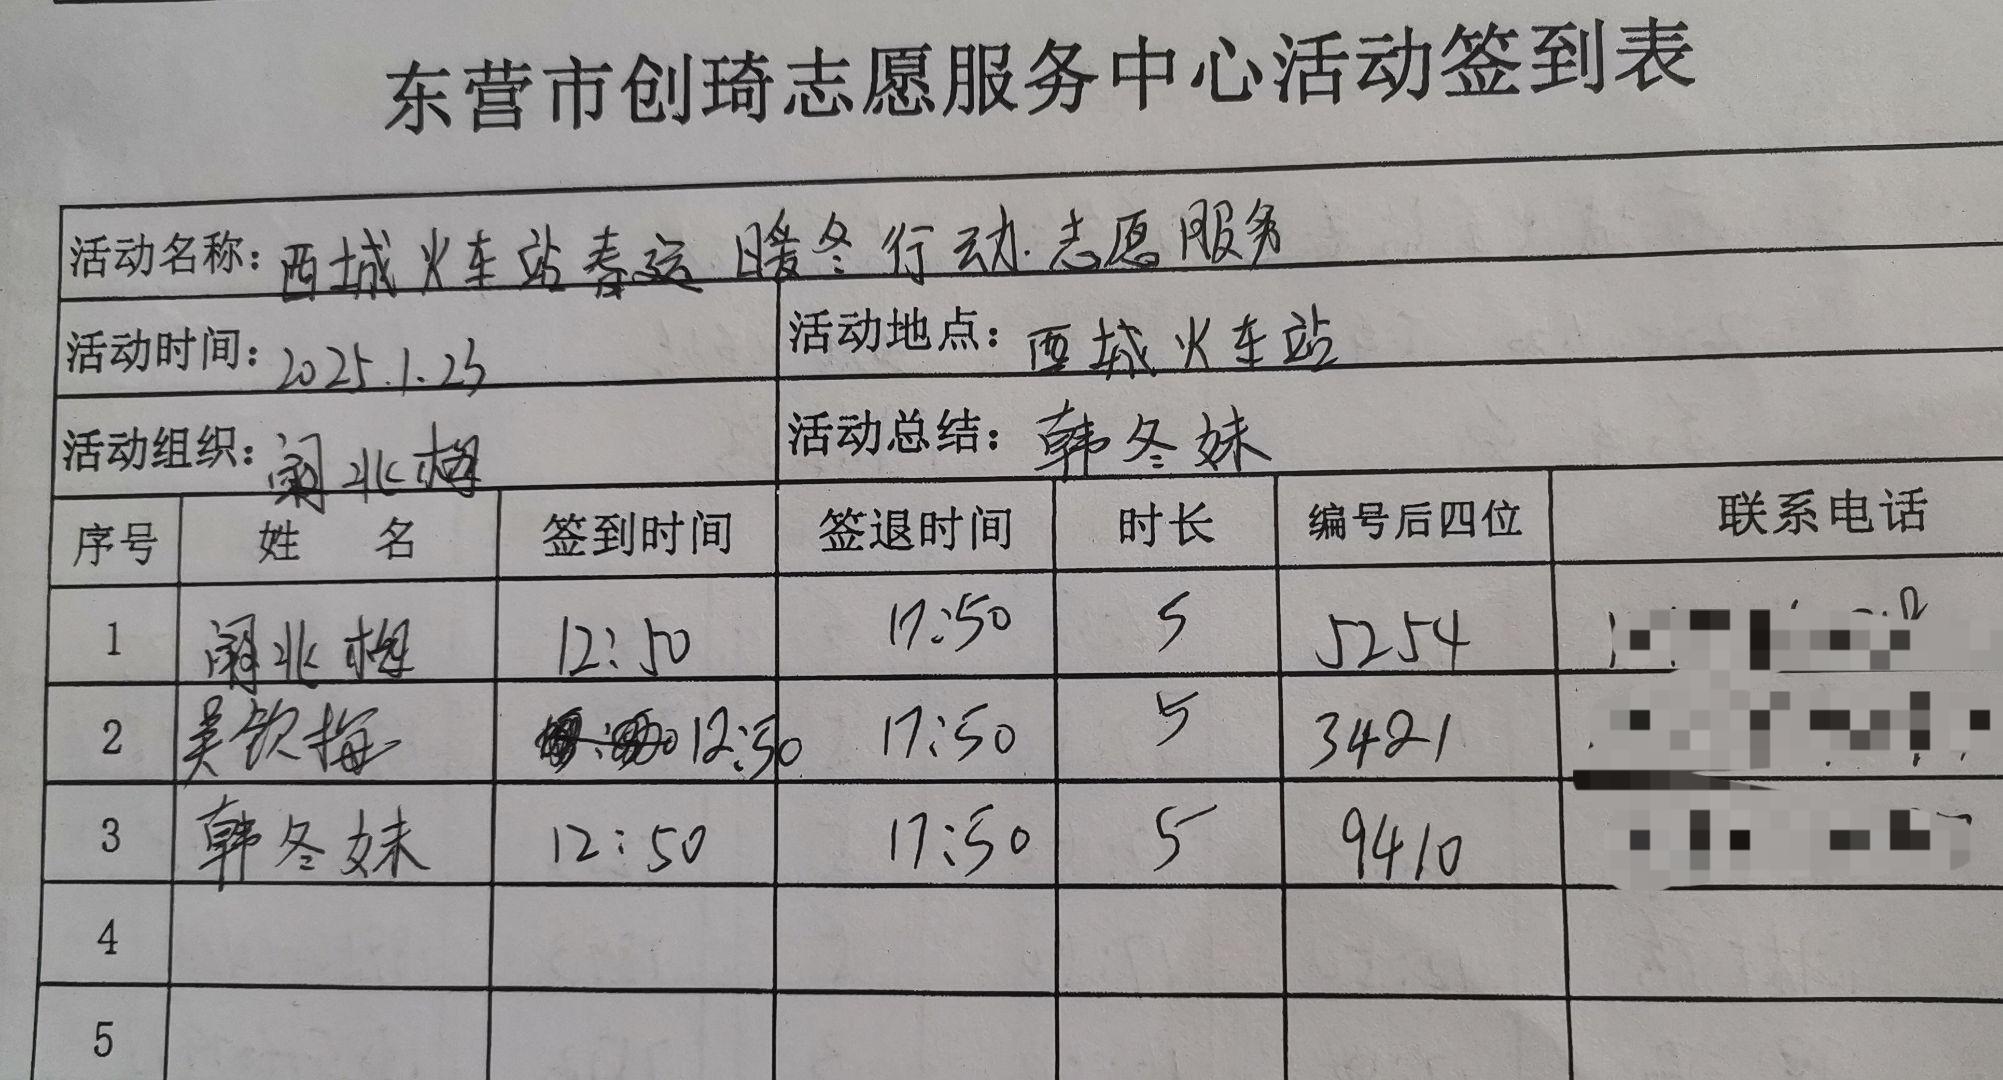 东营市创琦志愿服务中心活动签到表
活动名称：西城火车站春运暖冬行动志愿服务
活动时间：2025.1.23 活动地点：西城火车站
活动组织：北梅 活动总结：韩冬妹
序号 姓名 签到时间 签退时间 时长 编号后四位 联系电话
1 北梅 12:50 17:50 5 5254
2 吴钦梅 12:50 17:50 5 3421
3 韩冬妹 12:50 17:50 5 9410
4
5